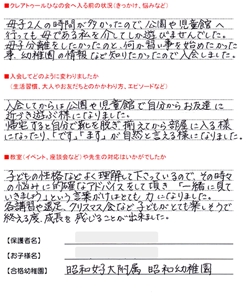 ■クレアトゥールひなの会へ入る前の状況（きっかけ、悩みなど）
母子2人の時間が多かったので、公園や児童館へ
行っても母である私を介してしか遊びませんでした。
母子分離をしたかったのと、何か習い事を始めたかった
事、幼稚園の情報など知りたかったので入会しました。
■入会してどのように変わりましたか
（生活習慣、大人やお友だちとのかかわり方、エピソードなど）
入会してからは公園や児童館で自分からお友達に
近づき遊ぶ様になりました。
帰宅すると自分で靴を脱ぎ揃えてから部屋に入る様
になったり、「です」「ます」が自然と言える様になりました。
■教室（イベント、座談会など）や先生の対応はいかがでしたか
子どもの性格などよく理解して下さっているので、その時々
の悩みに的確なアドバイスをして頂き「一緒に見て
いきましょう」という言葉がけはとても力になりました。
各講習や遠足、クリスマス会など子どもがとても楽しそうで
終える度、成長を感じることが出来ました。
【保護者名】
【お子様名】
【合格幼稚園】 昭和女子大附属 昭和幼稚園